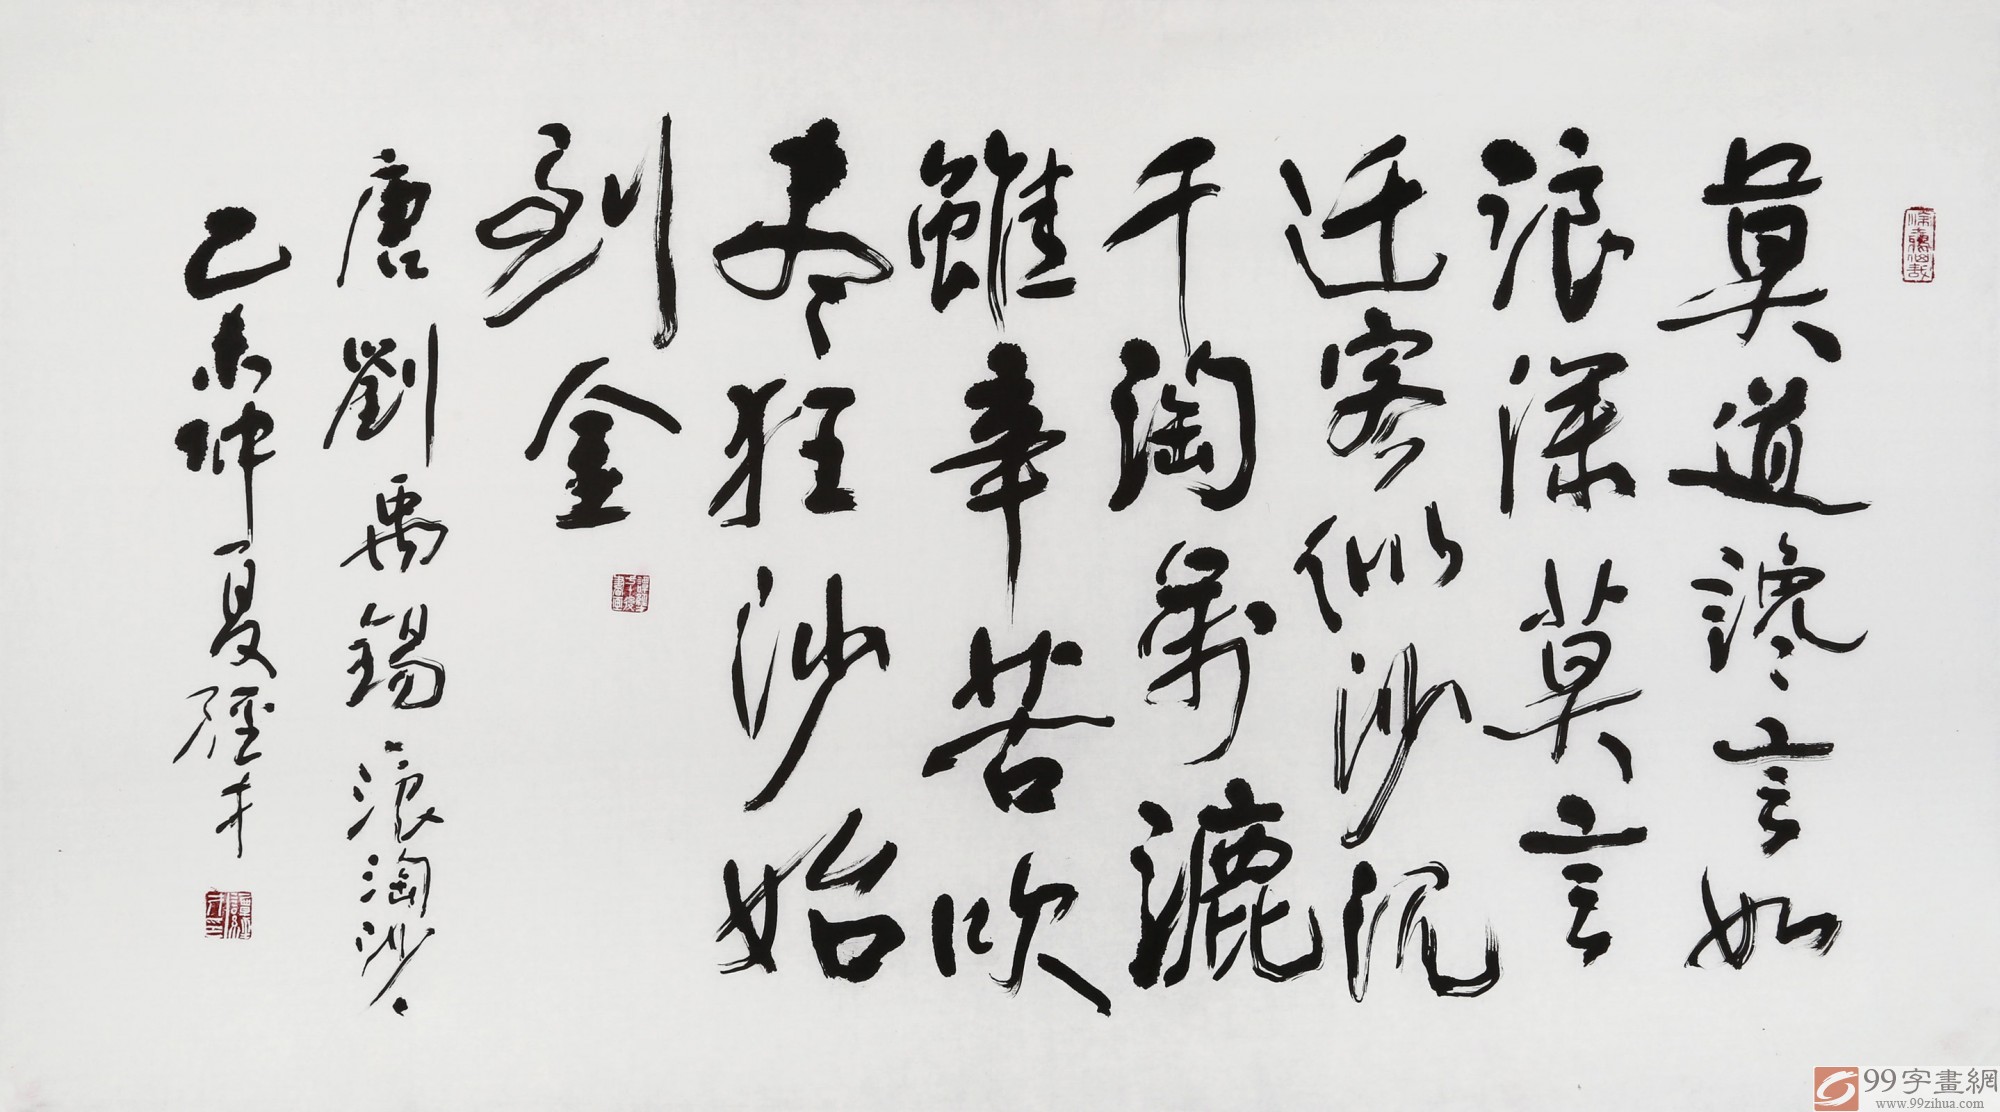 莫道谗言如
浪深莫言
迁客似沙沉
千淘萬漉
雖辛苦吹
尽狂沙始
到金
唐劉禹錫浪淘沙
乙未仲夏經才
99字畫網
www.99zihua.com